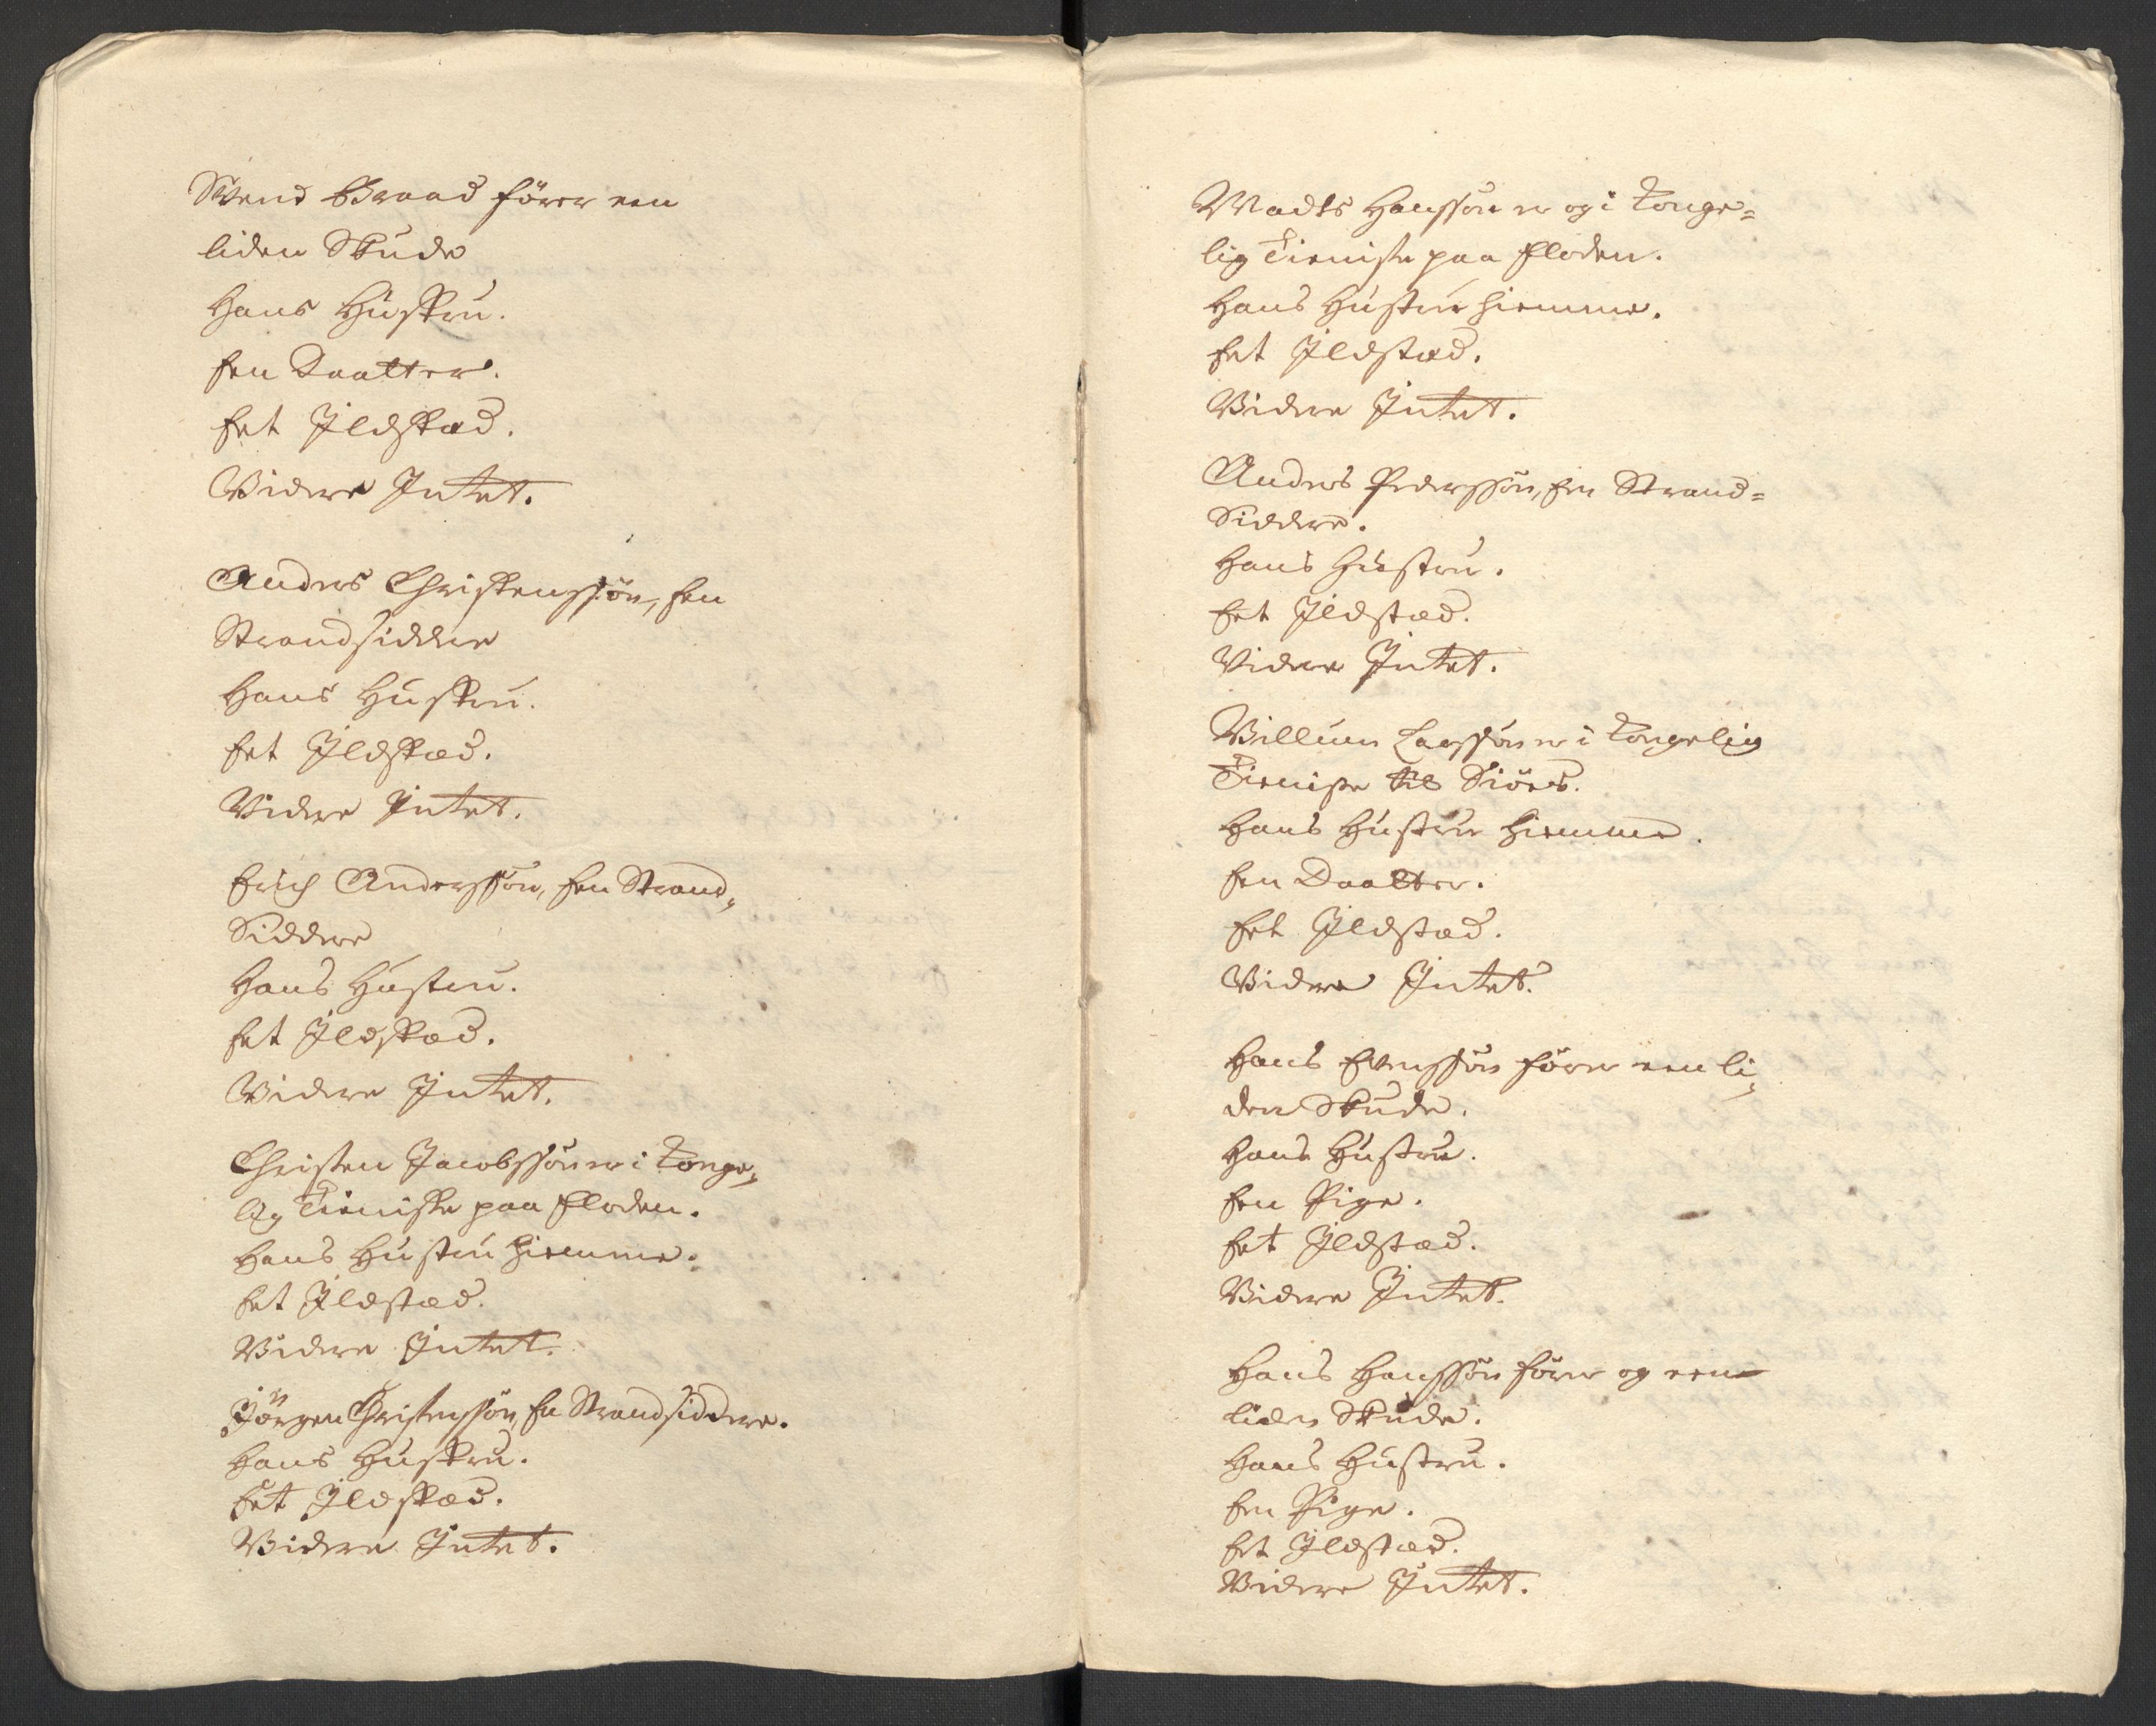 Svend Braad förer een
liden Skude
Hans Hustru.
Een Daatter.
Eet Ildstæd.
Videre Intet.
Anders Christenssön, Een
Strandsiddere
Hans Hustru.
Eet Ildstæd.
Videre Intet.
Erich Anderssön, Een Strand„
Siddere
Hans Hustru.
Eet Ildstæd.
Videre Intet.
Christen Jacobssön er i Konge„
lig Tieniste paa Floden.
Hans Hustru hiemme.
Eet Ildstæd.
Videre Intet.
Jörgen Christenssön, En Strandsiddere.
Hans Hustru.
Eet Ildstæd.
Videre Intet.
Madts Hanssön er og i Konge=
lig Tieniste paa Floden.
Hans Hustru hiemme.
Eet Ildstæd.
Videre Intet.
Anders Pederssön, Een Strand=
Siddere.
Hans Hustru.
Eet Ildstæd.
Videre Intet.
Villum Larssön er i Kongelig
Tieniste til Siöes.
Hans Hustru hiemme.
Een Daatter.
Eet Ildstæd.
Videre Intet.
Hans Evenssön förer een li„
den Skude.
Hans Hustru.
Een Pige.
Eet Ildstæd.
Videre Intet.
Hans Hanssön förer og een
liden Skude.
Hans Hustru.
Een Pige.
Eet Ildstæd.
Videre Intet.